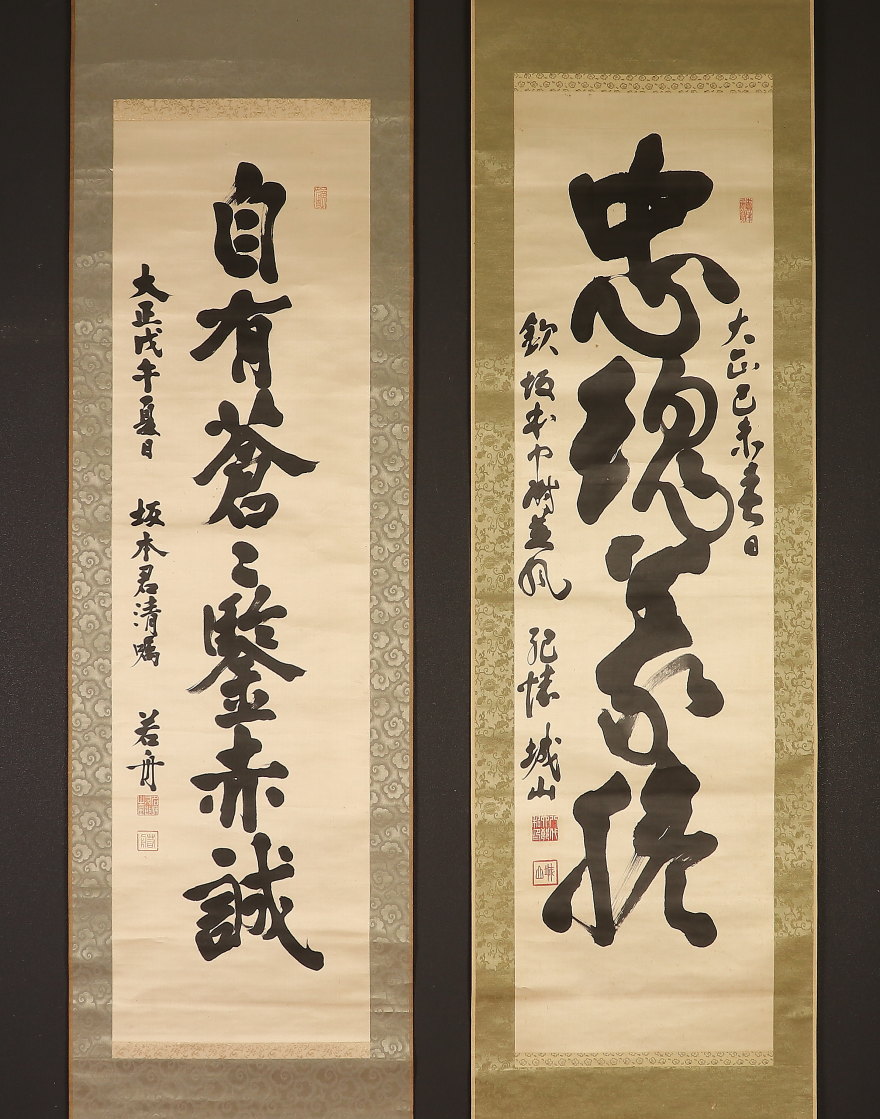 大正己未春日
忠魂義
欽坂本中尉英風 記懐 城山
自有蒼々鑒赤誠
大正戊午夏日 坂本君清嘱 若舟